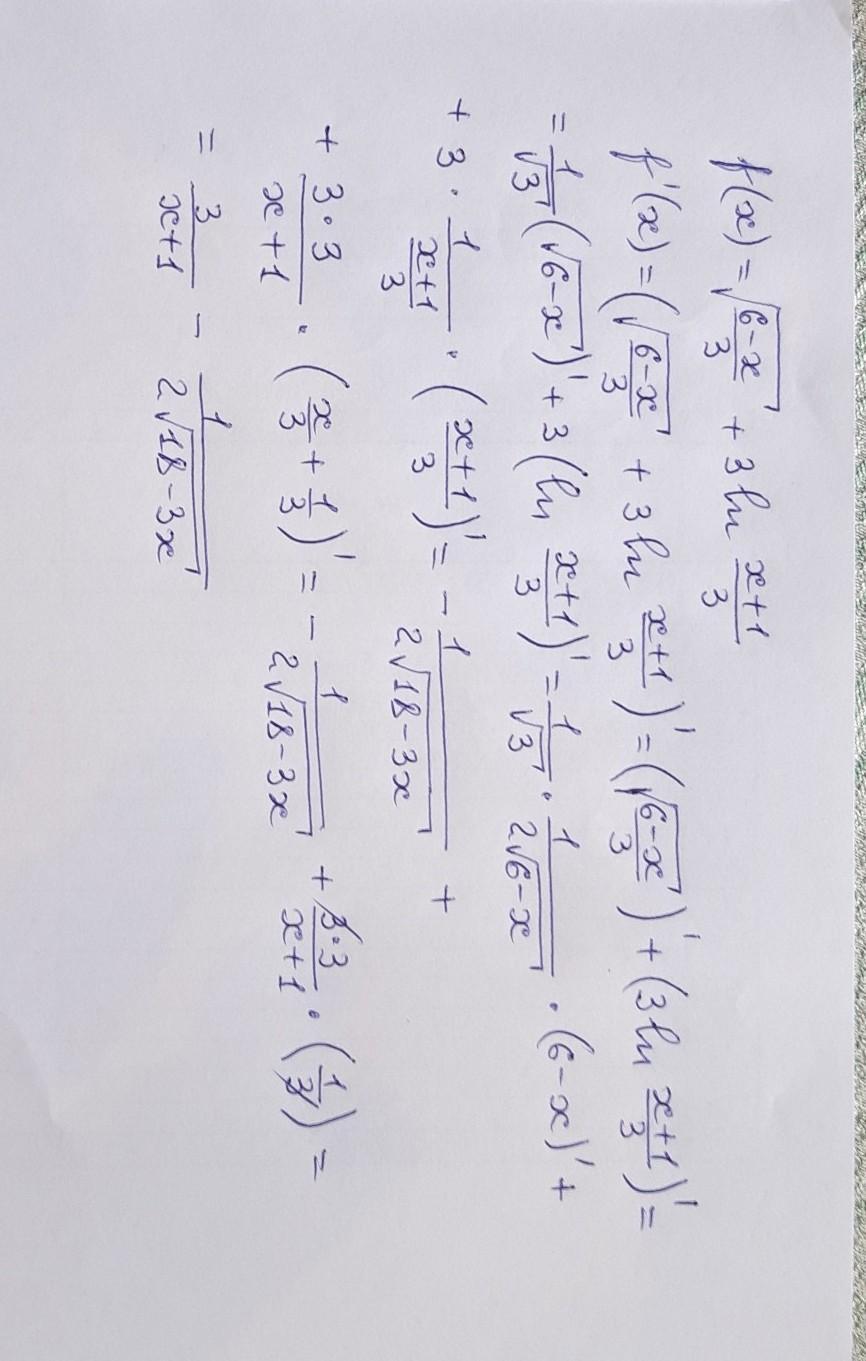 f(x) = √((6-x)/3) + 3 ln (x+1)/3
f'(x) = (√((6-x)/3) + 3 ln (x+1)/3)' = (√((6-x)/3))' + (3 ln (x+1)/3)' =
= 1/√3 (√(6-x))' + 3 (ln (x+1)/3)' = 1/√3 · 1/(2√(6-x)) · (6-x)' +
+ 3 · 1/((x+1)/3) · ((x+1)/3)' = - 1/(2√(18-3x)) +
+ (3·3)/(x+1) · (x/3 + 1/3)' = - 1/(2√(18-3x)) + (3·3)/(x+1) · (1/3) =
= 3/(x+1) - 1/(2√(18-3x))